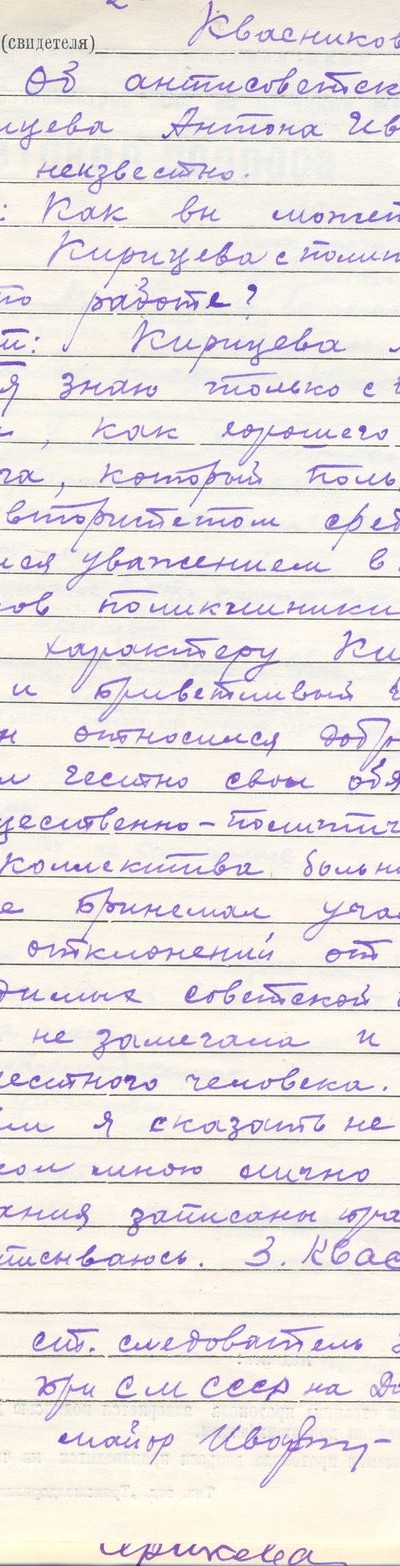 2
Квасников
(свидетеля)
Об антисоветск
ицева Антона Ив
неизвестно.
: Как вы может
Кирицева с полит
по работе?
т: Кирицева
я знаю только с
, как хорошего
ча, который поль
авторитетом сред
ися уважением в
ков поликлиники
характеру Ки
и приветливый
н относился добр
л честно свои обя
щественно-политич
коллектива больн
е принимал учас
отклонений от
димых советской
не замечала и
честного человека.
ем я сказать не
кол мною лично
ания записаны пра
писываюсь. З. Квас
ст. следователь
при СМ СССР на До
майор